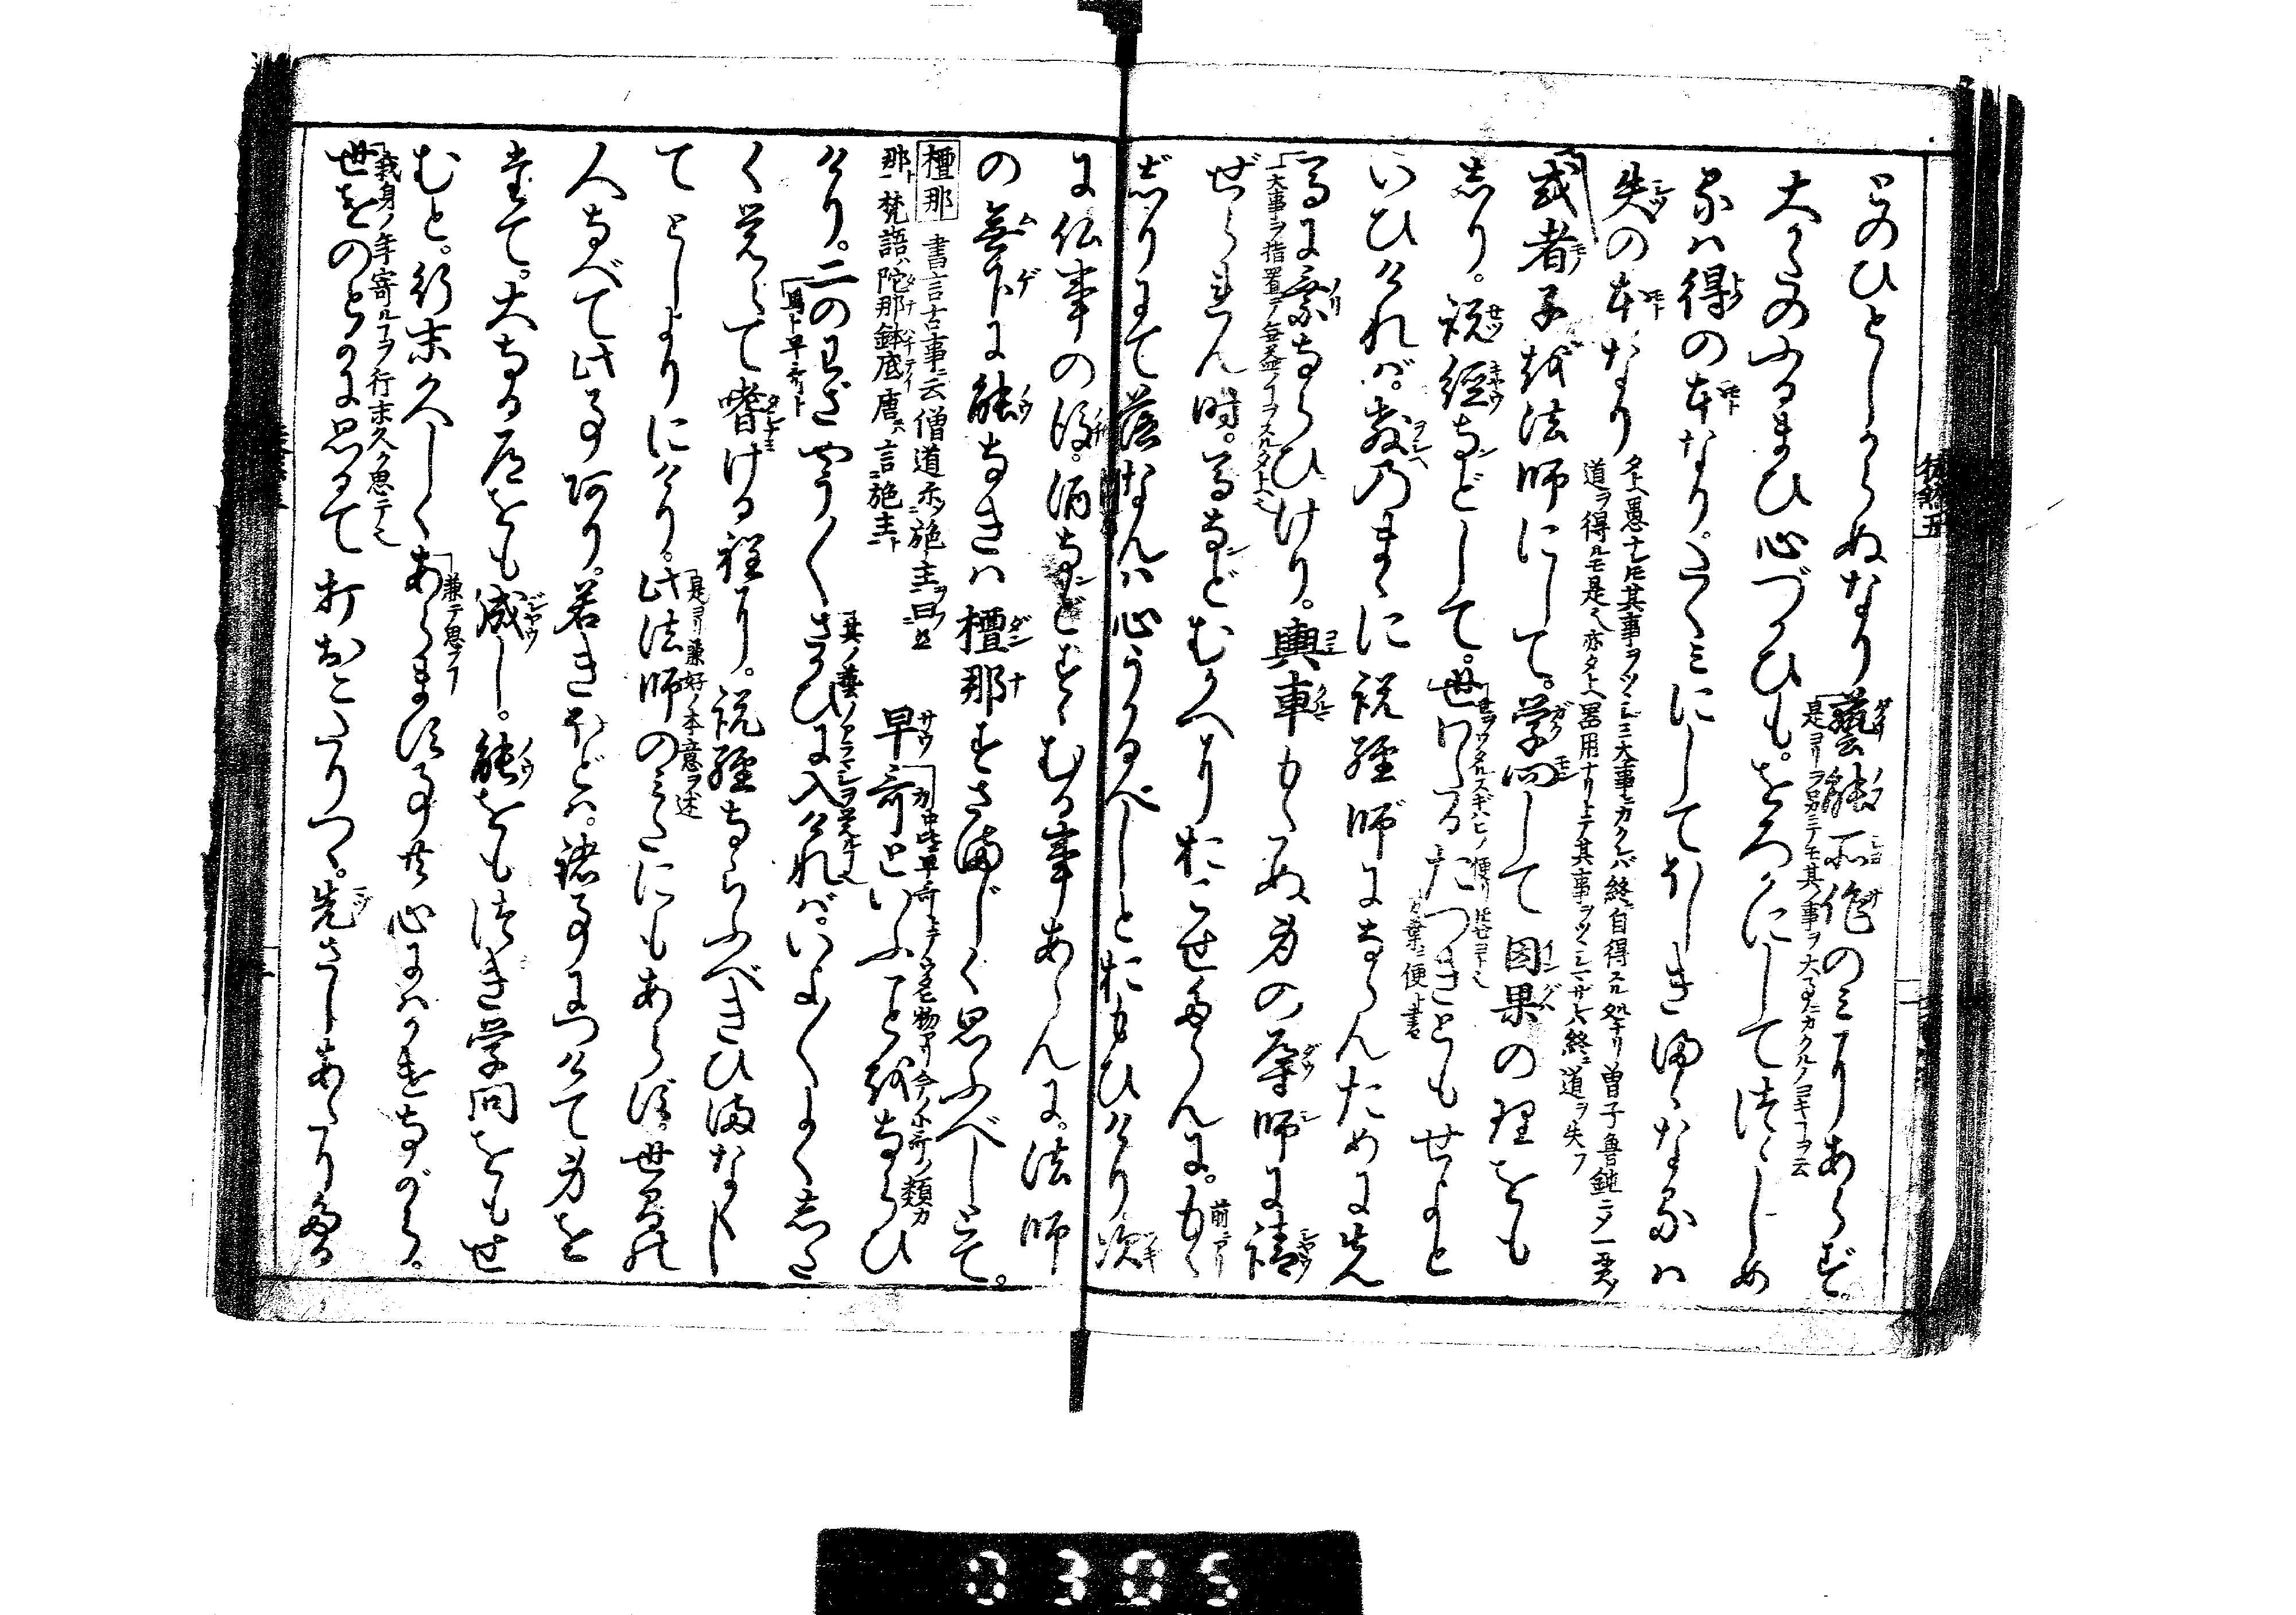 とのひとしからぬなり藝能所作のみにあらず。
是ヨリヲ見テモ其ノ事ヲ大事ニカクルノヨキヿヲ云
大かたのふるまひ心づかひも。をろかにしてつゝしめ
るは得の本なり。たくみにしてほしきまゝなるは
失の本なり
タトヘ愚ナレ𪜈其事ヲツヽシミ大事ニカクレバ終ニ自得スル処アリ曽子魯鈍ニ〆一貫ノ
道ヲ得ルモ是也亦タトヘ器用ナリトテ其事ヲツヽシマザレバ終ニ道ヲ失フ
或者子を法師になして。学問して因果の理をも
しり。説経などして。世わたるたつきともせよと
世ヲワタルスギハヒノ便リ
いひければ。教のまゝに説経師にならんために先
馬に乗ならひけり。輿車もたぬ身の導師に請
一大事ヲ指置テ無益ノヿヲスルタトヘ
ぜられん時。馬などむかへにおこせたらんに。もゝ
前ニアリ
じりにて落なんは心うかるべしとおもひけり次
に仏事の後。酒などすゝむる事あらんに。法師
の無下に能なきは檀那すさまじく思ふべしとて。
檀那 書言古事ニ云僧道亦施主ヲ曰
那ト梵語ハ陀那鉢底唐ニハ言施主ト
早哥といふことをならひ
けり。二のわざやう〳〵さかひに入ければ。いよ〳〵よくした
馬ト早哥ト
く覚えて嗜ける程に。説経ならふべきひまなくし
てとしよりにけり。此法師のみにもあらず。世間の
是ヨリ兼好ノ本意ヲ述
人なべて此事あり。若きほどは。諸事につけて身を
立て。大なる道をも成し。能をもつき学問をもせ
むと。行末久しくあらます事共心にはかけながら。
兼テ思フヿ
世をのどかに思ひて打おこたりつゝ。先さしあたりたる
我身ノ年寄ルヿヲ行末久ク思テ也